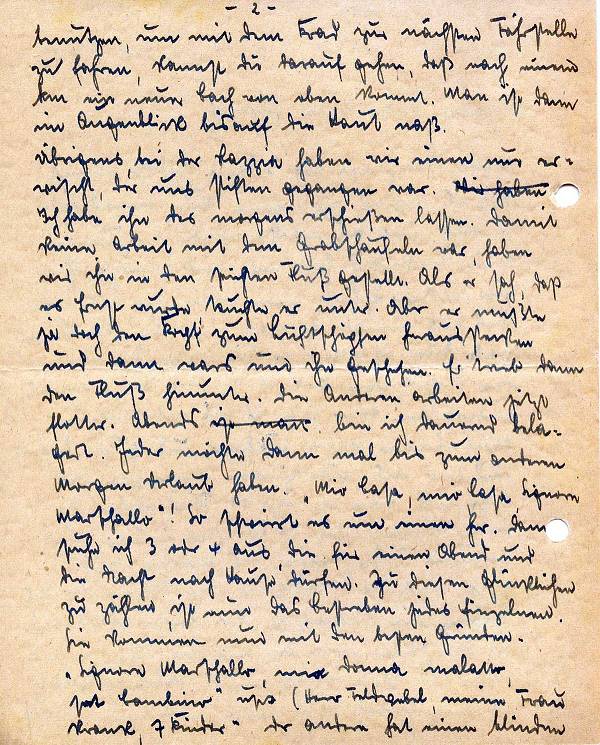 - 2 -
benutzen, um mit dem Krad zur nächsten Fährstelle
zu fahren, kannst du darauf gehen, daß nach einem
km ein neuer Bach von oben kommt. Man ist dann
im Augenblick bis auf die Haut naß.
Übrigens, bei der Razzia haben wir einen nur er-
wischt, der uns stiften gegangen war. Wir haben
Ich habe ihn des morgens erschießen lassen. Damit
keine Arbeit mit dem Grabschaufeln war, haben
wir ihn in den Fluß gestellt. Als er sah, daß
es Ernst wurde, tauchte er unter. Aber er mußte
ja doch den Kopf zum Luftschöpfen herausstecken
und dann wars um ihn geschehen. Er trieb dann
den Fluß hinunter. Die Anderen arbeiten jetzt
flotter. Abends ist man bin ich dauernd bela-
gert. Jeder möchte dann mal bis zum anderen
Morgen Urlaub haben. „Mio casa, mio casa Signore
Marschallo"! So schwirrt es um einen her. Dann
suche ich 3 oder 4 aus, die für einen Abend und
die Nacht nach Hause dürfen. Zu diesen Glücklichen
zu zählen, ist nun das Bestreben jedes Einzelnen.
Sie kommen nun mit den besten Gründen.
„Signore Marschallo, mia donna malatto,
set bambino" usw (Herr Feldwebel, meine Frau
krank, 7 Kinder" der andere hat einen blinden